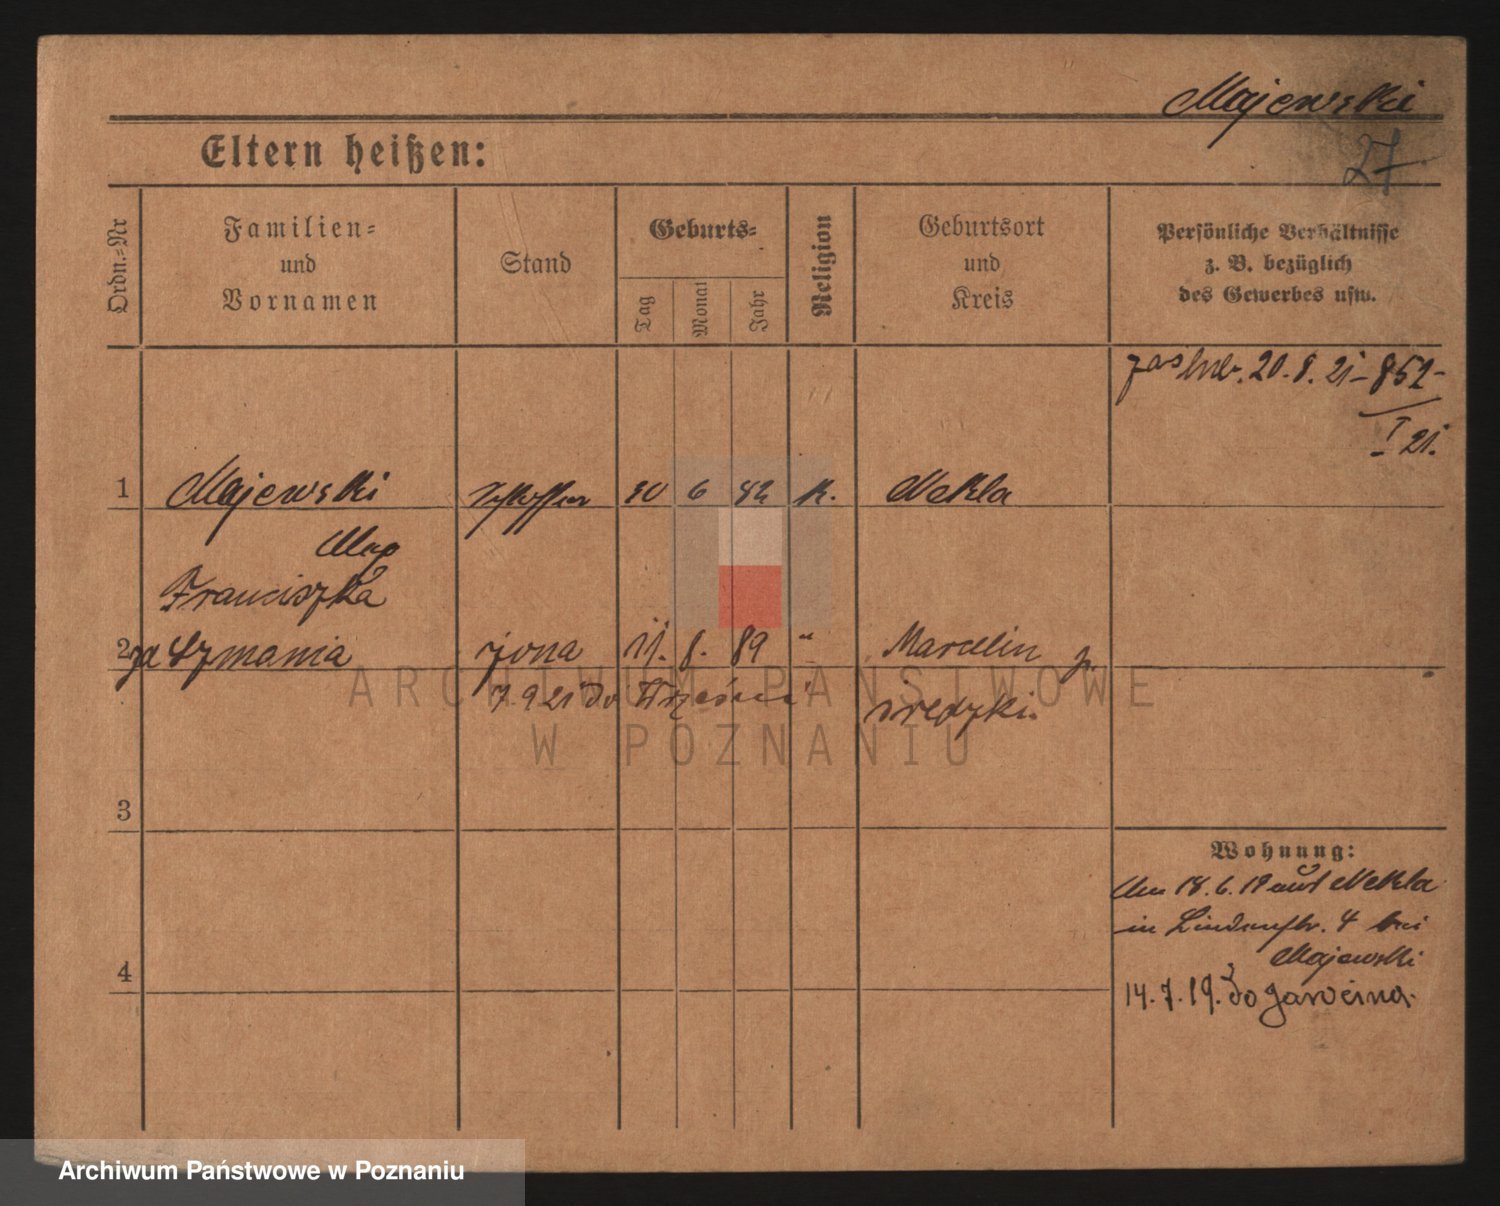 Majewski
27
Eltern heißen:
Ordn.-Nr
Familien-
und
Vornamen
Stand
Geburts-
Tag
Monat
Jahr
Religion
Geburtsort
und
Kreis
Persönliche Verhältnisse
z. B. bezüglich
des Gewerbes usw.
20. 8. 21 - 852 -
I 21.
1 Majewski 30 6 82 K. Nekla
Franciszka
2 żona 11. 8. 89 " Marcelin p.
7 9 21 do Wrześni średzki.
3
Wohnung:
Am 18. 6. 19 aus Nekla
in Lindenstr. 4 bei
Majewski
4
14. 7. 19. do Jarocina.
ARCHIWUM PAŃSTWOWE
W POZNANIU
Archiwum Państwowe w Poznaniu